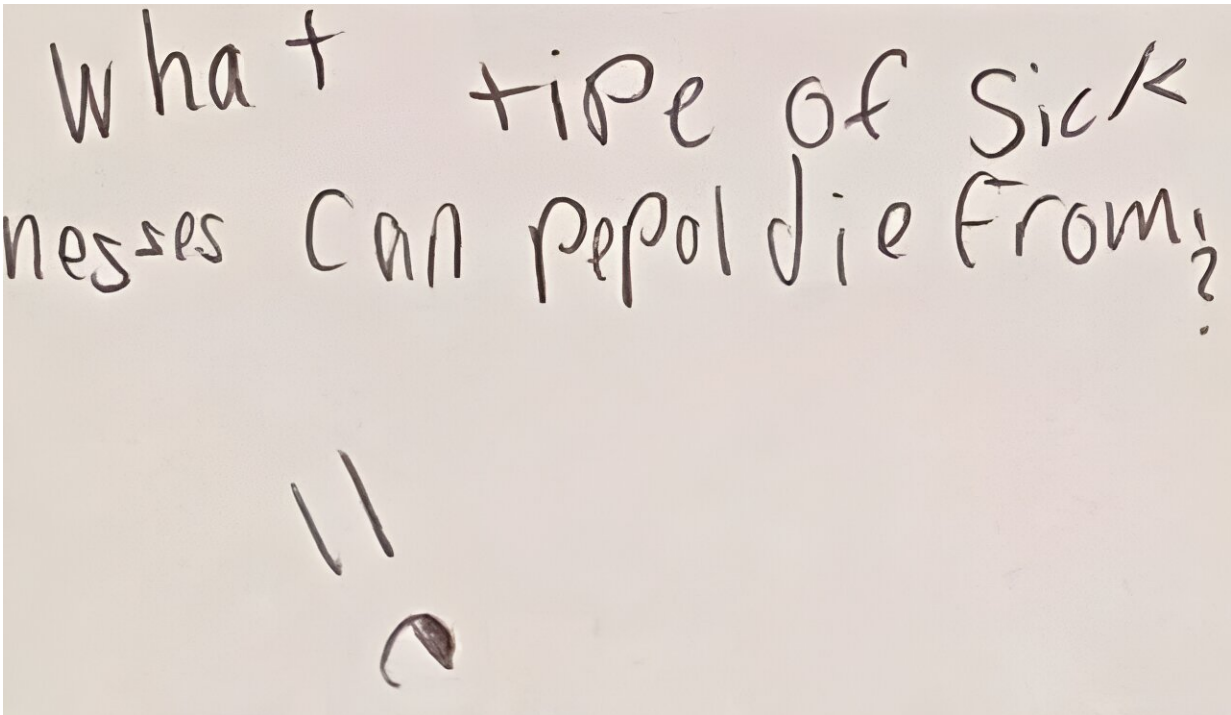 What tipe of Sick
nesses Can pepol die From?